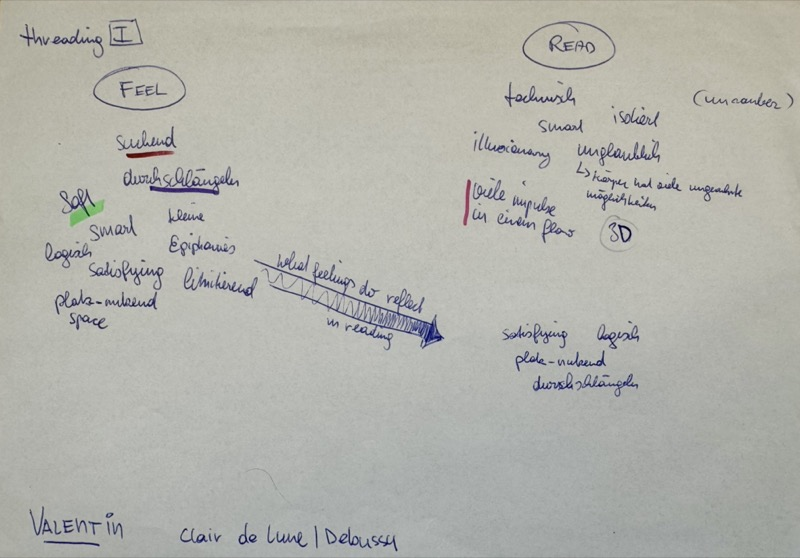 threading I
FEEL
suchend
durchschlängeln
Soft
smart
kleine
Epiphanies
logisch
satisfying
limitierend
platz-nutzend
space
what feelings do reflect
in reading
READ
technisch
isoliert
smart
illusionary
unglaublich
↳ Körper hat viele ungeahnte
möglichkeiten
viele impulse
in einem flow
3D
satisfying logisch
platz-nutzend
durchschlängeln
VALENTIN
Clair de Lune / Debussy